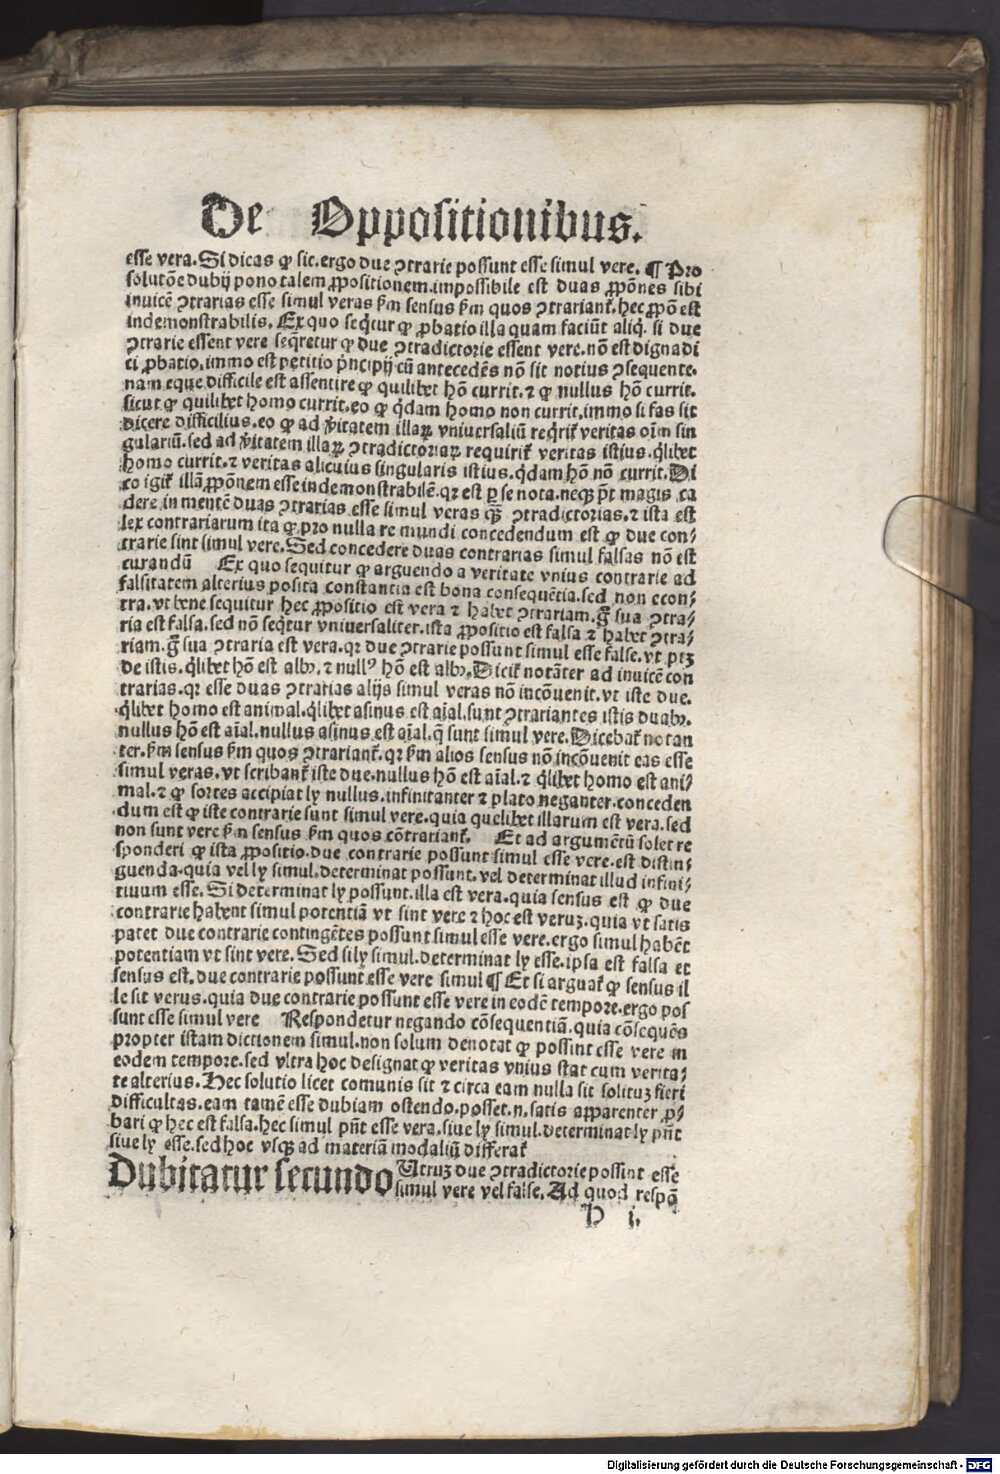 De Oppositionibus.
esse vera. Si dicas ꝙ sic. ergo due ꝯtrarie possunt esse simul vere. ¶ Pro
solutõe dubij pono talem ꝓpositionem. impossibile est duas ꝓpõnes sibi
inuicẽ ꝯtrarias esse simul veras ẜm sensus ẜm quos ꝯtrariant᷑. hec ꝓpõ est
indemonstrabilis. Ex quo seq̃tur ꝙ ꝓbatio illa quam faciũt aliq̃. si due
ꝯtrarie essent vere seq̃retur ꝙ due ꝯtradictorie essent vere. nõ est digna di
ci ꝓbatio. immo est petitio pͥncipij cũ antecedẽs nõ sit notius ꝯsequente.
nam eque difficile est assentire ꝙ quilibet hõ currit. ⁊ ꝙ nullus hõ currit.
sicut ꝙ quilibet homo currit. eo ꝙ qͥdam homo non currit. immo si fas sit
dicere difficilius. eo ꝙ ad ṽitatem illaꝝ vniuersaliũ reqͥrit᷑ veritas oĩm sin
gulariũ. sed ad ṽitatem illaꝝ ꝯtradictoriaꝝ requirit᷑ veritas istius. qͥlibet
homo currit. ⁊ veritas alicuius singularis istius. qͥdam hõ nõ currit. Di
co igit᷑ illã ꝓpõnem esse indemonstrabilẽ. qꝛ est ꝑ se nota. neqꝫ põt magis ca
dere in mentẽ duas ꝯtrarias esse simul veras qᷓꝫ ꝯtradictorias. ⁊ ista est
lex contrariarum ita ꝙ pro nulla re mundi concedendum est ꝙ due con⸗
trarie sint simul vere. Sed concedere duas contrarias simul falsas nõ est
curandũ Ex quo sequitur ꝙ arguendo a veritate vnius contrarie ad
falsitatem alterius posita constantia est bona consequẽtia. sed non econ⸗
tra. vt bene sequitur hec ꝓpositio est vera ⁊ habet ꝯtrariam. g̃ sua ꝯtra⸗
ria est falsa. sed nõ seq̃tur vniuersaliter. ista ꝓpositio est falsa ⁊ habet ꝯtra⸗
riam. g̃ sua ꝯtraria est vera. qꝛ due ꝯtrarie possunt simul esse false. vt ptꝫ
de istis. qͥlibet hõ est albꝰ. ⁊ nullꝰ hõ est albꝰ. Dicit᷑ notãter ad inuicẽ con
trarias. qꝛ esse duas ꝯtrarias alijs simul veras nõ incõuenit. vt iste due.
qͥlibet homo est animal. qͥlibet asinus est aĩal. sunt ꝯtrariantes istis duabꝰ.
nullus hõ est aĩal. nullus asinus est aĩal. q̃ sunt simul vere. Dicebat᷑ notan
ter. ẜm sensus ẜm quos ꝯtrariant᷑. qꝛ ẜm alios sensus nõ incõuenit eas esse
simul veras. vt scribant᷑ iste due. nullus hõ est aĩal. ⁊ qͥlibet homo est ani⸗
mal. ⁊ ꝙ sortes accipiat ly nullus. infinitanter ⁊ plato neganter. conceden
dum est ꝙ iste contrarie sunt simul vere. quia quelibet illarum est vera. sed
non sunt vere ẜm sensus ẜm quos cõtrariant᷑. Et ad argumẽtũ solet re
sponderi ꝙ ista ꝓpositio. due contrarie possunt simul esse vere. est distin⸗
guenda. quia vel ly simul. determinat possunt. vel determinat illud infini⸗
tiuum esse. Si determinat ly possunt. illa est vera. quia sensus est ꝙ due
contrarie habent simul potentiã vt sint vere ⁊ hoc est veruꝫ. quia vt satis
patet due contrarie contingẽtes possunt simul esse vere. ergo simul habẽt
potentiam vt sint vere. Sed si ly simul. determinat ly esse. ipsa est falsa et
sensus est. due contrarie possunt esse vere simul ¶ Et si arguat᷑ ꝙ sensus il
le sit verus. quia due contrarie possunt esse vere in eodẽ tempore. ergo pos
sunt esse simul vere Respondetur negando cõsequentiã. quia cõsequẽs
propter istam dictionem simul. non solum denotat ꝙ possint esse vere in
eodem tempore. sed vltra hoc designat ꝙ veritas vnius stat cum verita⸗
te alterius. Hec solutio licet comunis sit ⁊ circa eam nulla sit solituꝫ fieri
difficultas. eam tamẽ esse dubiam ostendo. posset. n. satis apparenter ꝓ⸗
bari ꝙ hec est falsa. hec simul pñt esse vera. siue ly simul. determinat ly pñt
siue ly esse. sed hoc vsqꝫ ad materiã modaliũ differat᷑
Dubitatur secundo Utruꝫ due ꝯtradictorie possint esse
simul vere vel false. Ad quod respõ
h i.
Digitalisierung gefördert durch die Deutsche Forschungsgemeinschaft - DFG